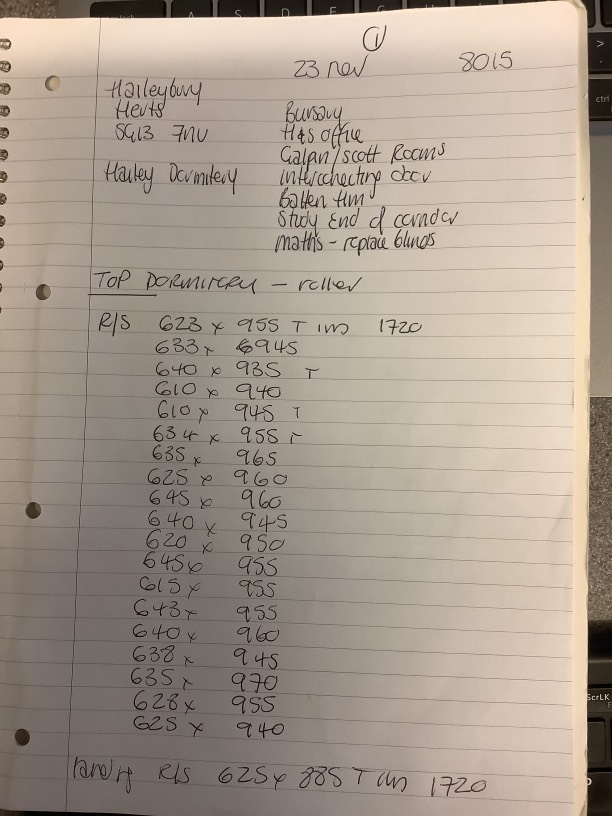 ①
23 nov 8015
Haileybury
Herts Bursary
SG13 7NU H&S office
Galpin/scott Rooms
Hailey Dormitery interconnecting door
Batten tim
Study End of corridor
maths - replace blinds
TOP DORMITERY - roller
R/S 623 x 955 T im 1720
633 x 945
640 x 935 T
610 x 940
610 x 945 T
634 x 955 T
635 x 965
625 x 960
645 x 960
640 x 945
620 x 950
645 x 955
615 x 955
643 x 955
640 x 960
638 x 945
635 x 970
628 x 955
625 x 940
R/S 625 x 885 T im 1720
A S D E
>
ctrl
ScrLK